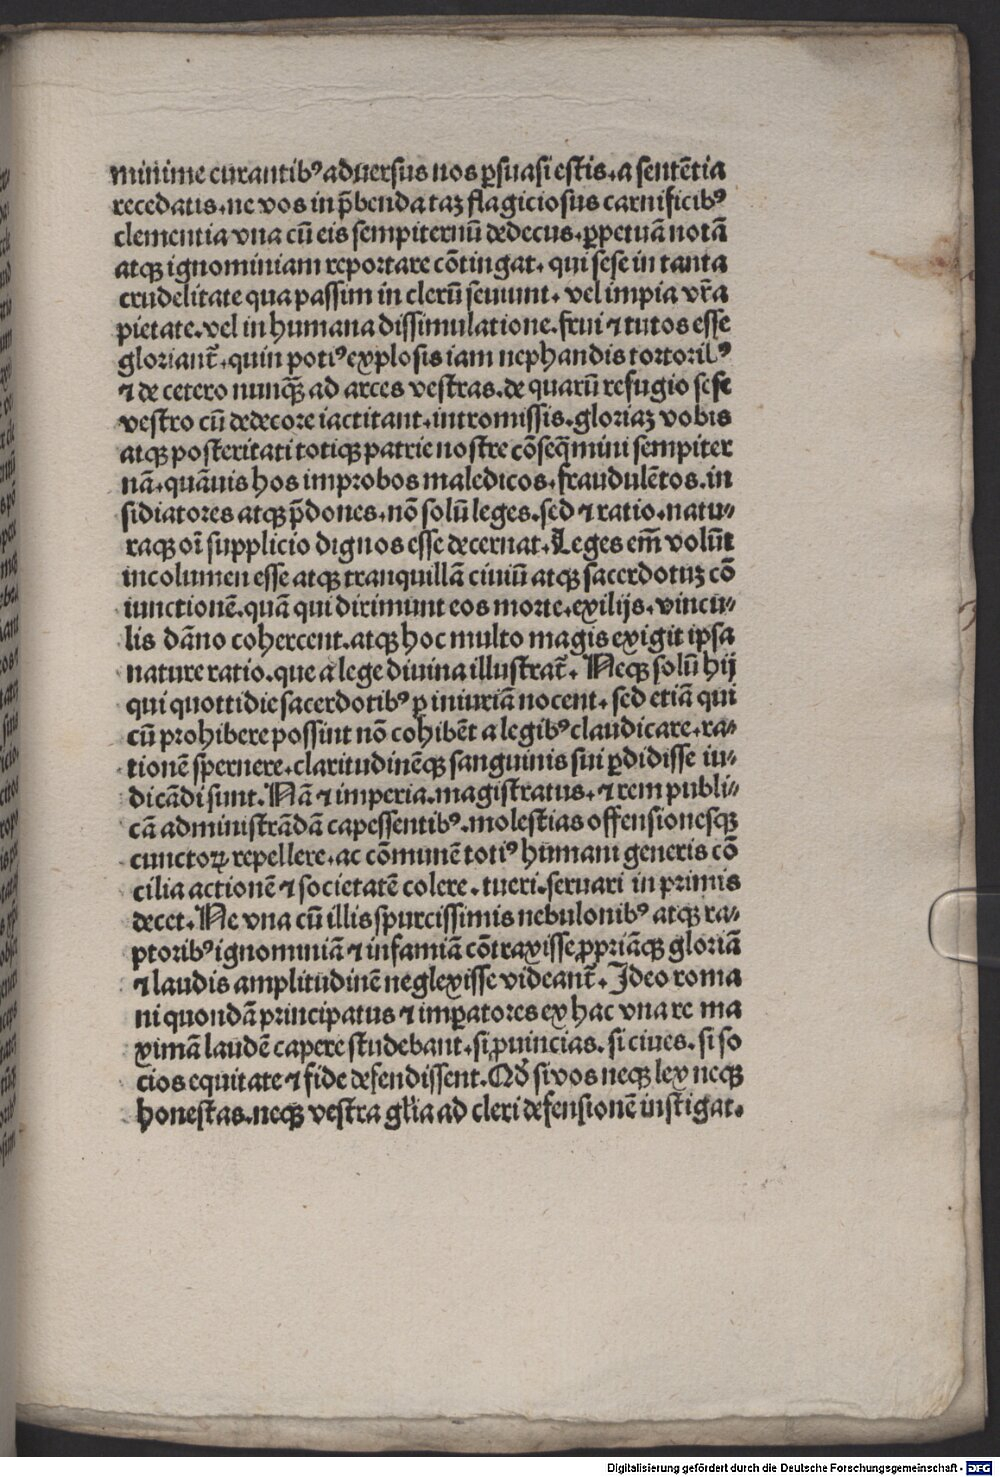 minime curantibꝰ aduersus nos ꝑsuasi estis. a sentētia
recedatis. ne vos in p̄benda taꝫ flagiciosus carnificibꝰ
clementia vna cū eis sempiternū dedecus. ꝑpetuā notā
atqꝫ ignominiam reportare cōtingat. qui sese in tanta
crudelitate qua passim in clerū seuiunt. vel impia vr̄a
pietate. vel in humana dissimulatione. frui ⁊ tutos esse
gloriant᷑. quin potiꝰ explosis iam nephandis tortoribꝰ
⁊ de cetero nunqꝫ̄ ad arces vestras. de quarū refugio sese
vestro cū dedecore iactitant. intromissis. gloriaꝫ vobis
atqꝫ posteritati totiqꝫ patrie nostre cōseq̄mini sempiter
nā. quāuis hos improbos maledicos. fraudulētos. in
sidiatores atqꝫ p̄dones. nō solū leges. sed ⁊ ratio. natu⸗
raqꝫ oī supplicio dignos esse decernat. Leges em̄ volūt
incolumen esse atqꝫ tranquillā ciuiū atqꝫ sacerdotuꝫ cō
iunctionē. quā qui dirimunt eos morte. exilijs. vincu⸗
lis dāno cohercent. atqꝫ hoc multo magis exigit ipsa
nature ratio. que a lege diuina illustrat᷑. Neqꝫ solū hij
qui quottidie sacerdotibꝰ ꝑ iniuriā nocent. sed etiā qui
cū prohibere possint nō cohibēt a legibꝰ claudicare. ra⸗
tionē spernere. claritudinēqꝫ sanguinis sui ꝑdidisse iu⸗
dicādi sunt. Nā ⁊ imperia. magistratus. ⁊ rem publi⸗
cā administrādā capessentibꝰ. molestias offensionesqꝫ
cunctoꝝ repellere. ac cōmunē totiꝰ humani generis cō
cilia actionē ⁊ societatē colere. tueri. seruari in primis
decet. Ne vna cū illis spurcissimis nebulonibꝰ atqꝫ ra⸗
ptoribꝰ ignominiā ⁊ infamiā cōtraxisse ꝓpriāqꝫ gloriā
⁊ laudis amplitudinē neglexisse videant᷑. Ideo roma
ni quondā principatus ⁊ imꝑatores ex hac vna re ma
ximā laudē capere studebant. si ꝓuincias. si ciues. si so
cios equitate ⁊ fide defendissent. Qd̕ si vos neqꝫ lex neqꝫ
honestas. neqꝫ vestra gl̄ia ad cleri defensionē instigat.
Digitalisierung gefördert durch die Deutsche Forschungsgemeinschaft - DFG